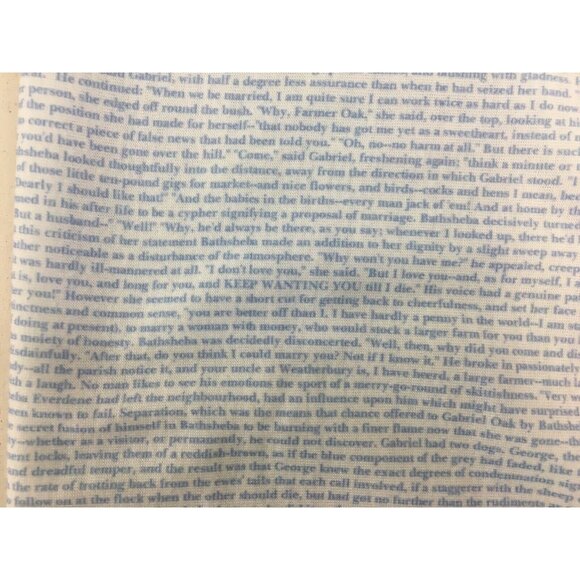 and blushing with gladness.
He continued: "When we be married, I am quite sure I can work twice as hard as I do now
Gabriel, with half a degree less assurance than when he had seized her hand.
person, she edged off round the bush. "Why, Farmer Oak," she said, over the top, looking at hi
of the position she had made for herself--"that nobody has got me yet as a sweetheart, instead of
correct a piece of false news that had been told you." "Oh, no--no harm at all." But there is
you'd have been gone over the hill." "Come," said Gabriel, freshening again; "think a minute or
thsheba looked thoughtfully into the distance, away from the direction in which Gabriel stood. "I
of those little ten-pound gigs for market--and nice flowers, and birds--cocks and hens I mean, bec
dearly I should like that." "And the babies in the births--every man jack of 'em! And at home by th
ned in his after life to be a cypher signifying a proposal of marriage. Bathsheba decisively turne
But a husband--" "Well!" "Why, he'd always be there, as you say; whenever I looked up, there he'd
this criticism of her statement Bathsheba made an addition to her dignity by a slight sweep away
ther noticeable as a disturbance of the atmosphere. "Why won't you have me?" he appealed, creep
was hardly ill-mannered at all. "I don't love you," she said. "But I love you--and, as for myself, I
t is, love you, and long for you, and KEEP WANTING YOU till I die." His voice had a genuine pa
er you!" However she seemed to have a short cut for getting back to cheerfulness, and set her face
inctness and common sense, "you are better off than I. I have hardly a penny in the world--I am s
doing at present), to marry a woman with money, who would stock a larger farm for you than you
ety of honesty. Bathsheba was decidedly disconcerted. "Well, then, why did you come and di
sdainfully. "After that, do you think I could marry you? Not if I know it." He broke in passionately
dy--all the parish notice it, and your uncle at Weatherbury is, I have heerd, a large farmer--much
h a laugh. No man likes to see his emotions the sport of a merry-go-round of skittishness. Very w
ba Everdene had left the neighbourhood, had an influence upon him which might have surprised
een known to fail. Separation, which was the means that chance offered to Gabriel Oak by Bathshe
secret fusion of himself in Bathsheba to be burning with a finer flame now that she was gone--th
y--whether as a visitor, or permanently, he could not discover. Gabriel had two dogs. George, th
ent locks, leaving them of a reddish-brown, as if the blue component of the grey had faded, like
nd dreadful temper, and the result was that George knew the exact degrees of condemnation sig
the rate of trotting back from the ewes' tails that each call involved, if a staggerer with the sheep
follow on at the flock when the other should die, but had got no further than the rudiments